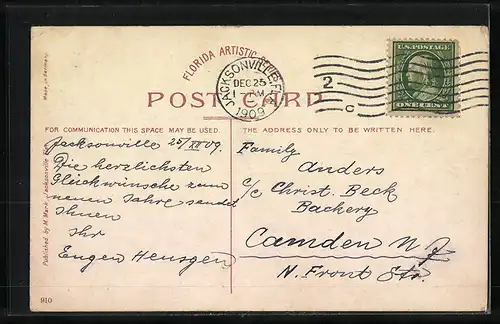 FLORIDA ARTISTIC
JACKSONVILLE, FLA.
DEC 25
1909
2
C
U.S. POSTAGE
ONE CENT
Made in Germany
POST CARD
FOR COMMUNICATION THIS SPACE MAY BE USED.
THE ADDRESS ONLY TO BE WRITTEN HERE.
Published by M. Mark, Jacksonville
Jacksonville 25/XII 09.
Die herzlichsten
Glückwünsche zum
neuen Jahre sendet
Ihnen
Ihr
Eugen Heusgen
Family
Anders
c/o Christ. Beck
Bachery
Camden N J
N. Front Str.
910